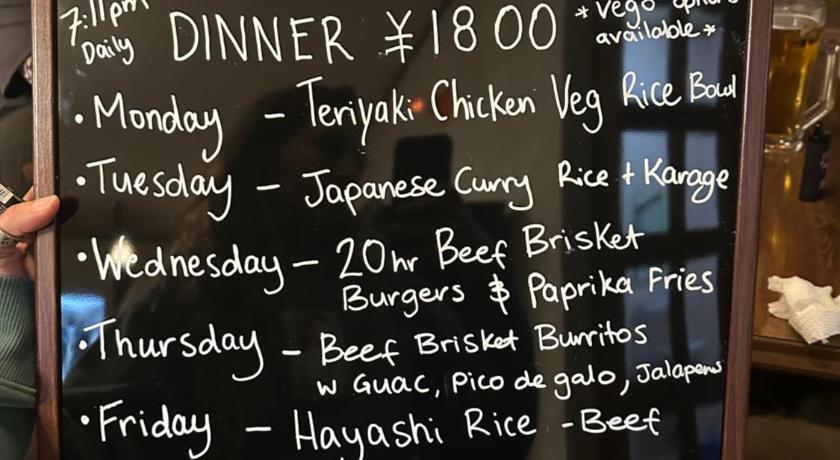 7:11pm
Daily
DINNER ¥1800
*Vego options
available*
• Monday – Teriyaki Chicken Veg Rice Bowl
• Tuesday – Japanese Curry Rice + Karage
• Wednesday – 20hr Beef Brisket
Burgers & Paprika Fries
• Thursday – Beef Brisket Burritos
w Guac, Pico de galo, Jalapens
• Friday – Hayashi Rice - Beef